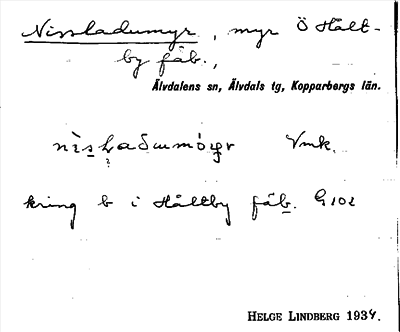 Nissladumyr, myr Ö Hålt-
by fäb.,
Älvdalens sn, Älvdals tg, Kopparbergs län.
Vmk.
kring b i Håltby fäb. G102
HELGE LINDBERG 1934.